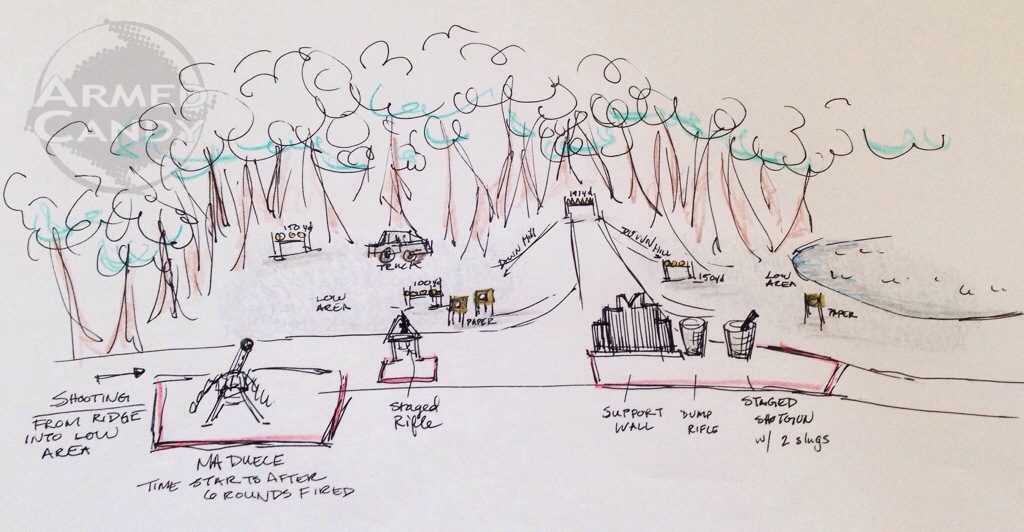 ARMED
CANDY
150yd
TRUCK
LOW
AREA
100yd
PAPER
DOWN HILL
DOWN HILL
150yd
LOW
AREA
PAPER
SHOOTING
FROM RIDGE
INTO LOW
AREA
MA DUECE
TIME STARTS AFTER
6 ROUNDS FIRED
Staged
Rifle
SUPPORT
WALL
DUMP
RIFLE
STAGED
SHOTGUN
w/ 2 slugs